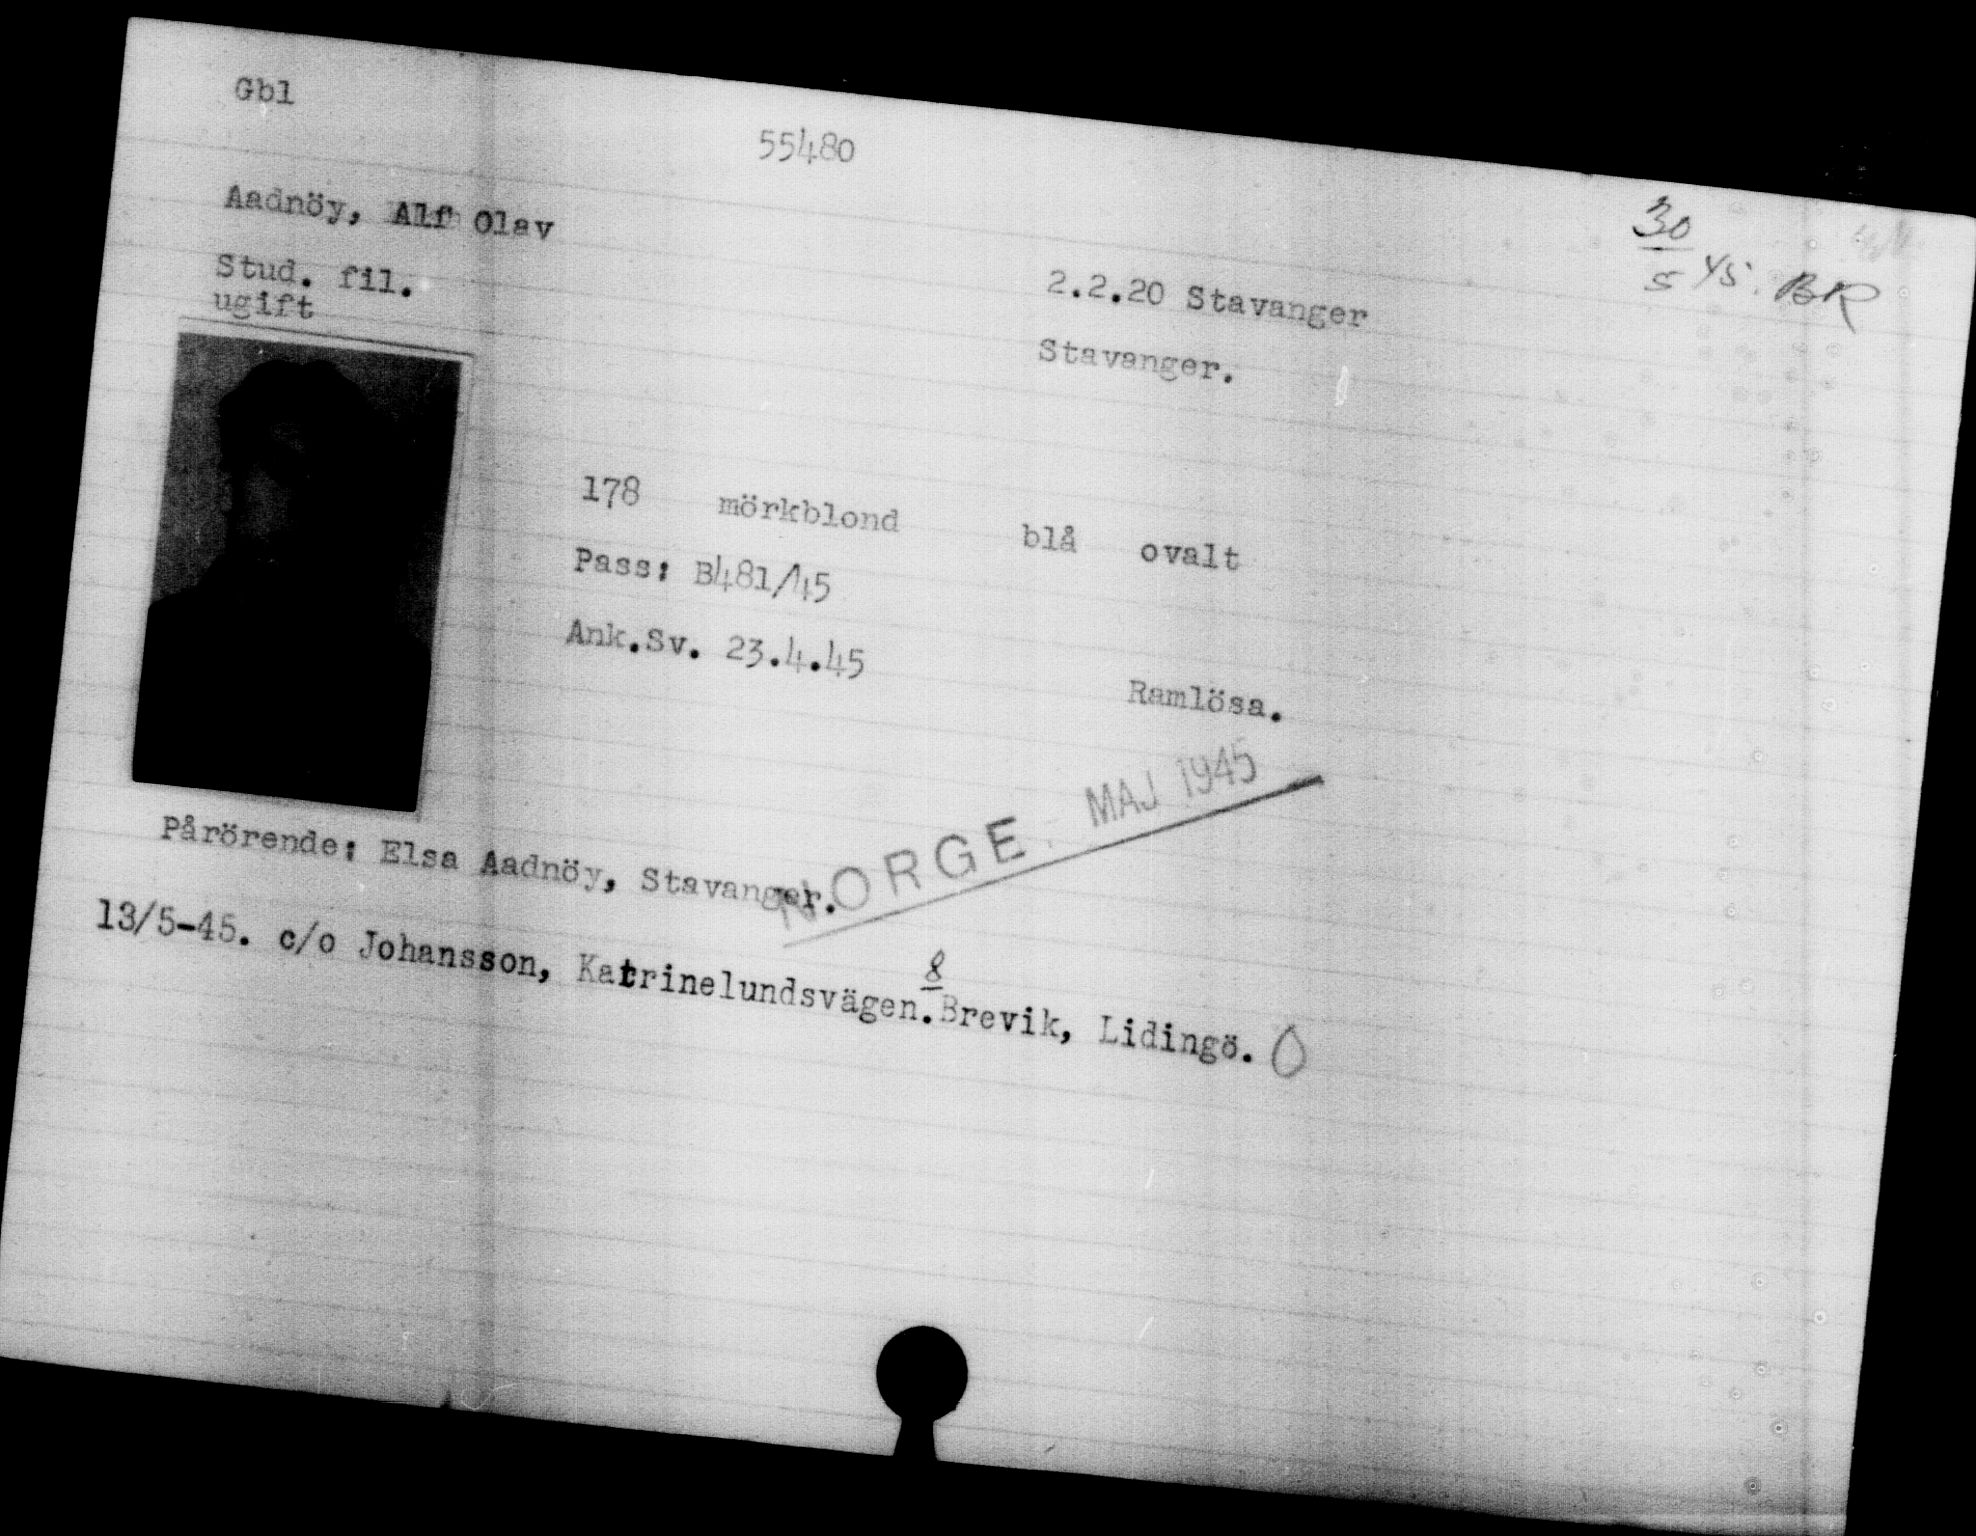 Gbl
55480
30/5 45. BR
Aadnöy, Alf Olav
Stud. fil.
ugift
2.2.20 Stavanger
Stavanger.
178 mörkblond blå ovalt
Pass: B481/45
Ank.Sv. 23.4.45
Ramlösa.
NORGE MAJ 1945
Pårörende: Elsa Aadnöy, Stavanger.
13/5-45. c/o Johansson, Katrinelundsvägen. 8 Brevik, Lidingö.